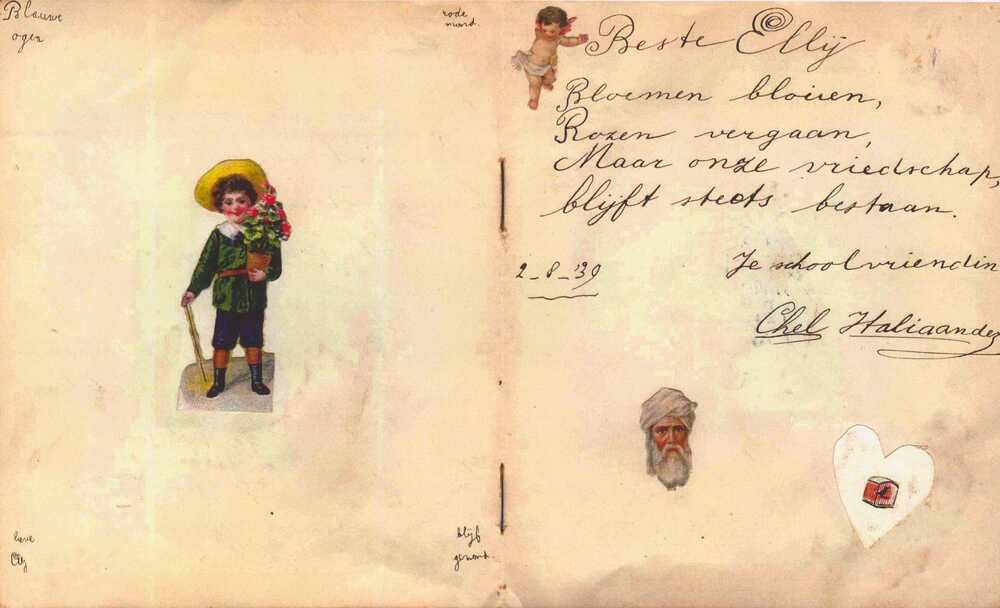 Blauwe
ogen
rode
mond.
lieve
Elly
blijf
gezond.
Beste Ellij
Bloemen bloiien,
Rozen vergaan,
Maar onze vriedschap,
blijft steets bestaan.
2-8-'39
Je schoolvriendin
Chel Haliaander